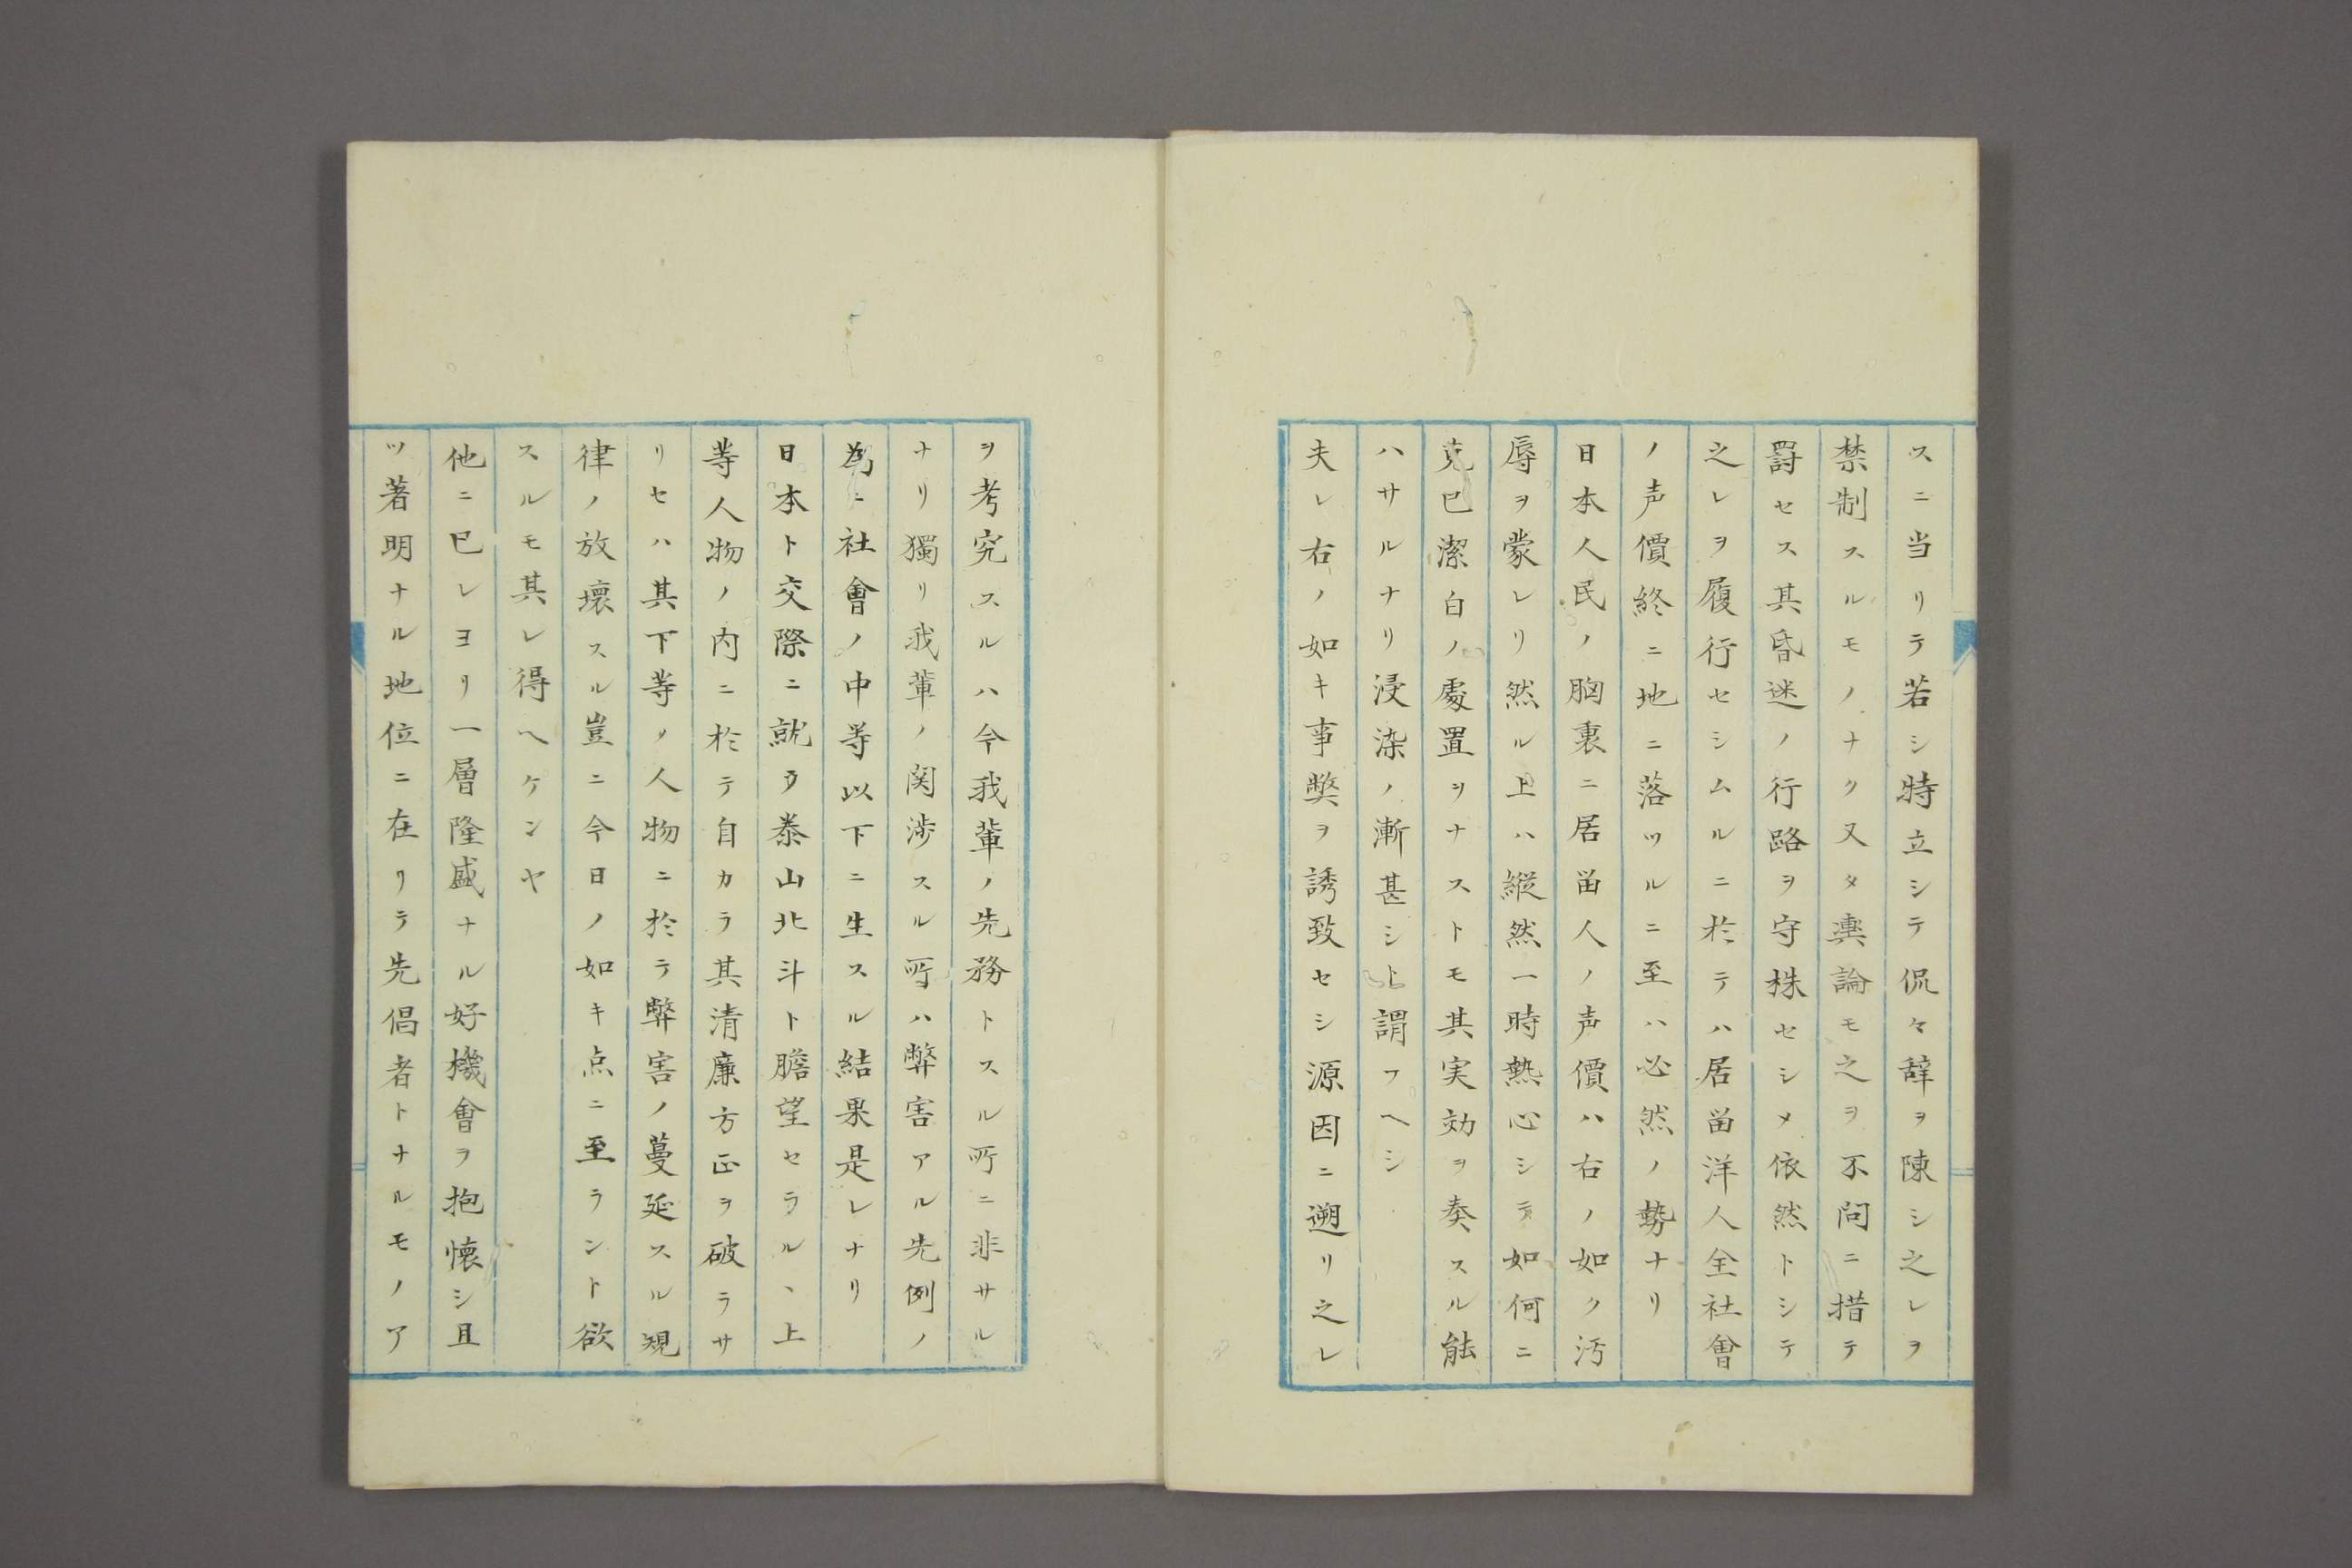 スニ当リテ若シ特立シテ侃々辞ヲ陳シ之レヲ
禁制スルモノナク又タ輿論モ之ヲ不問ニ措テ
罸セス其昏迷ノ行路ヲ守株セシメ依然トシテ
之レヲ履行セシムルニ於テハ居畄洋人全社會
ノ声價終ニ地ニ落ツルニ至ハ必然ノ勢ナリ
日本人民ノ胸裏ニ居畄人ノ声價ハ右ノ如ク汚
辱ヲ蒙レリ然ル上ハ縦然一時熱心シテ如何ニ
克己潔白ノ處置ヲナストモ其実効ヲ奏スル能
ハサルナリ浸染ノ漸甚シト謂フヘシ
夫レ右ノ如キ事弊ヲ誘致セシ源因ニ遡リ之レ
ヲ考究スルハ今我輩ノ先務トスル所ニ非サル
ナリ獨リ我輩ノ関渉スル所ハ弊害アル先例ノ
為ニ社會ノ中等以下ニ生スル結果是レナリ
日本ト交際ニ就テ泰山北斗ト膽望セラル、上
等人物ノ内ニ於テ自カラ其清廉方正ヲ破ラサ
リセハ其下等ノ人物ニ於ラ弊害ノ蔓延スル規
律ノ放壊スル豈ニ今日ノ如キ点ニ至ラント欲
スルモ其レ得ヘケンヤ
他ニ已レヨリ一層隆盛ナル好機會ヲ抱懐シ且
ツ著明ナル地位ニ在リテ先倡者トナルモノア